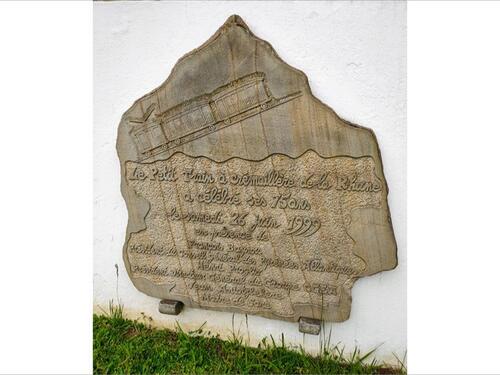 Le Petit Train à crémaillère de la Rhune
a célébré ses 75 ans
le samedi 26 juin 1999
en présence de
François Bayrou
Président du Conseil Général des Pyrénées Atlantiques
Henri
Président Directeur Général du Groupe
Jean
Maire de Sare